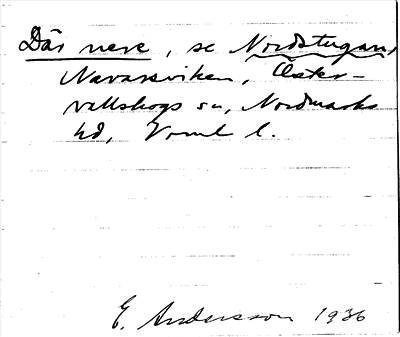 Där nere, se Nordstugan,
Navarsviken, Öster-
vallskogs sn, Nordmarks
hd, Vrml l.
E. Andersson 1936